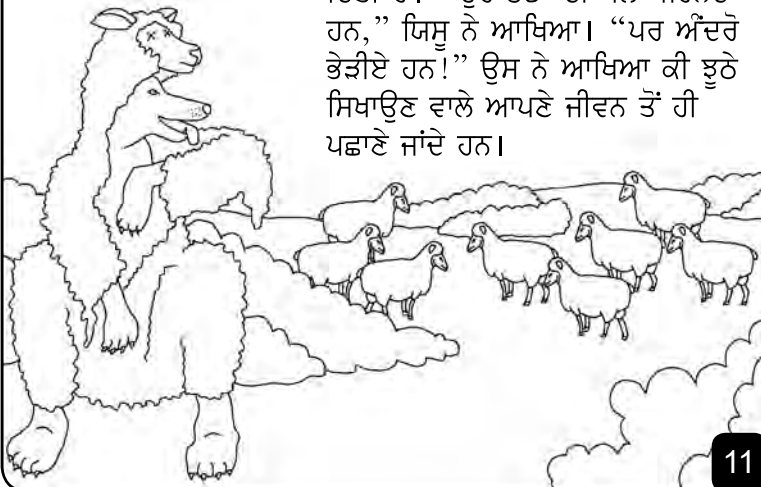 ਹਨ,” ਯਿਸੂ ਨੇ ਆਖਿਆ। “ਪਰ ਅੰਦਰੋ
ਭੇੜੀਏ ਹਨ!” ਉਸ ਨੇ ਆਖਿਆ ਕੀ ਝੂਠੇ
ਸਿਖਾਉਣ ਵਾਲੇ ਆਪਣੇ ਜੀਵਨ ਤੋਂ ਹੀ
ਪਛਾਣੇ ਜਾਂਦੇ ਹਨ।
11